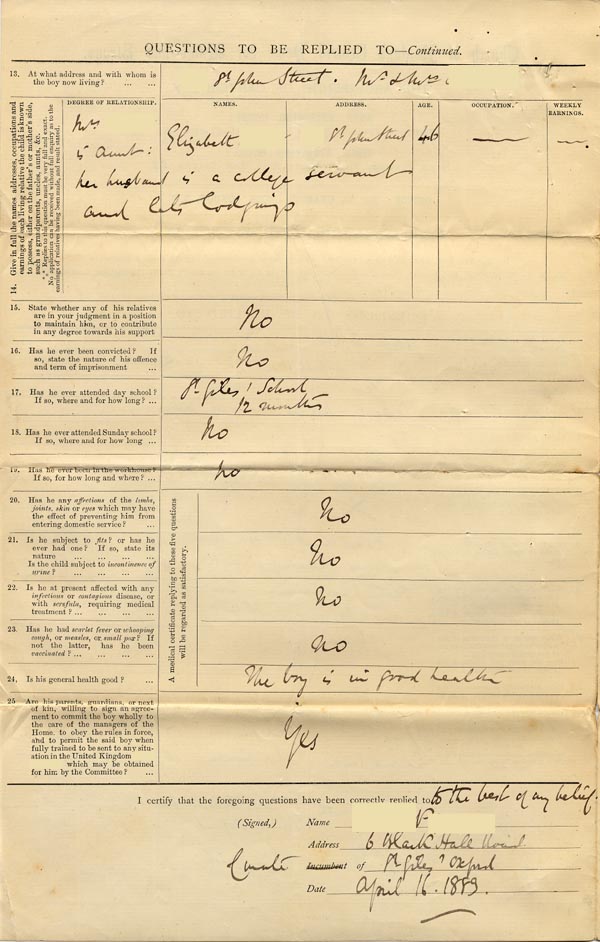 QUESTIONS TO BE REPLIED TO—Continued.
13. At what address and with whom is
the boy now living? ... ...
St John Street. Mr & Mrs
14. Give in full the names, addresses, occupations and
earnings of each living relative the child is known
to possess, either on the father's or mother's side,
such as grandparents, uncles, aunts, &c.
*** Replies to this question must be very full and exact.
No application can be received without full enquiry as to the
earnings of relatives having been made, and result stated.
DEGREE OF RELATIONSHIP. NAMES. ADDRESS. AGE. OCCUPATION. WEEKLY EARNINGS.
Mrs Elizabeth St John Street 46 — —
is aunt:
her husband is a college servant
and lets lodgings
15. State whether any of his relatives
are in your judgment in a position
to maintain him, or to contribute
in any degree towards his support
No
16. Has he ever been convicted? If
so, state the nature of his offence
and term of imprisonment ...
No
17. Has he ever attended day school?
If so, where and for how long? ...
St Giles' School
12 months
18. Has he ever attended Sunday school?
If so, where and for how long ...
No
19. Has he ever been in the workhouse?
If so, for how long and where? ...
No
A medical certificate replying to these five questions
will be regarded as satisfactory.
20. Has he any affections of the limbs,
joints, skin or eyes which may have
the effect of preventing him from
entering domestic service? ...
No
21. Is he subject to fits? or has he
ever had one? If so, state its
nature ... ... ... ...
Is the child subject to incontinence of
urine? ... ... ... ...
No
22. Is he at present affected with any
infectious or contagious disease, or
with scrofula, requiring medical
treatment? ... ... ... ...
No
23. Has he had scarlet fever or whooping
cough, or measles, or small pox? If
not the latter, has he been
vaccinated? ... ... ... ...
No
24. Is his general health good? ...
The boy is in good health
25. Are his parents, guardians, or next
of kin, willing to sign an agree-
ment to commit the boy wholly to
the care of the managers of the
Home, to obey the rules in force,
and to permit the said boy when
fully trained to be sent to any situ-
ation in the United Kingdom
which may be obtained
for him by the Committee? ...
Yes
I certify that the foregoing questions have been correctly replied to to the best of my belief.
(Signed,) Name
Address 6 Black Hall Road
Curate Incumbent of St Giles' Oxford
Date April 16. 1889.